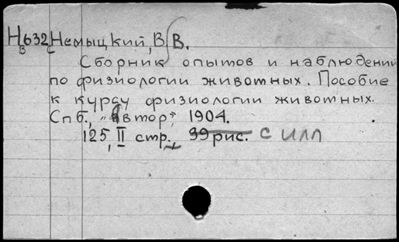 Н632 Немыцкий, В. В.
Сборник опытов и наблюдений
по физиологии животных. Пособие
к курсу физиологии животных.
Спб., "Автор", 1904.
125, II стр., 99 рис. с илл